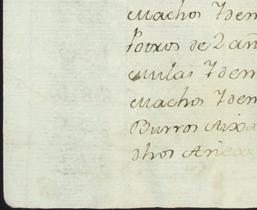 Machos Ydem
Potros de 2 añ
Mulas Ydem
Machos Ydem
Burros
dhos Añexo